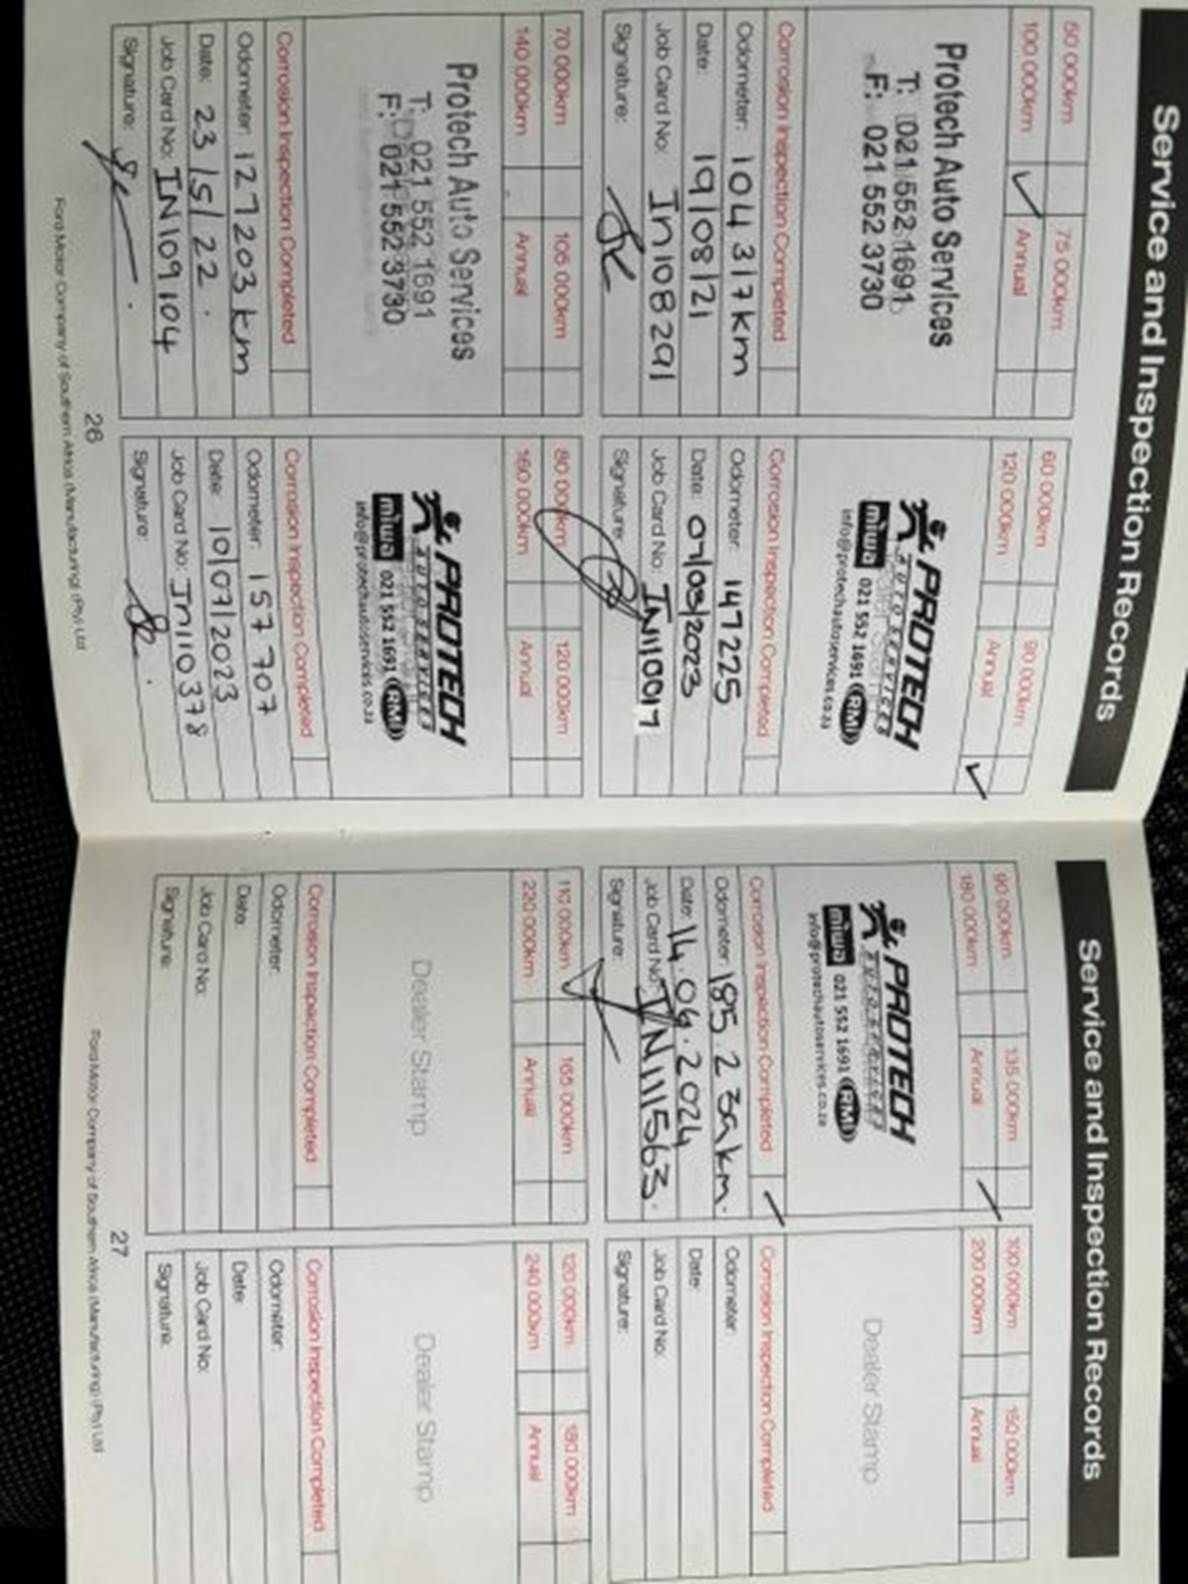 Service and Inspection Records
50 000km 75 000km
100 000km ✓ Annual
Protech Auto Services
T: 021 552 1691
F: 021 552 3730
Corrosion Inspection Completed
Odometer: 104 317km
Date: 19/08/21
Job Card No: In108291
Signature:
60 000km 90 000km
120 000km Annual ✓
PROTECH
AUTO SERVICES
miwa 021 552 1691 RMI
info@protechautoservices.co.za
Corrosion Inspection Completed
Odometer: 147225
Date: 07/03/2023
Job Card No: IN110017
Signature:
70 000km 105 000km
140 000km Annual
Protech Auto Services
T: 021 552 1691
F: 021 552 3730
Corrosion Inspection Completed
Odometer: 127203km
Date: 23/5/22.
Job Card No: IN109104
Signature:
80 000km 120 000km
160 000km Annual
PROTECH
AUTO SERVICES
miwa 021 552 1691 RMI
info@protechautoservices.co.za
Corrosion Inspection Completed
Odometer: 157707
Date: 10/07/2023
Job Card No: In110378
Signature:
26
Ford Motor Company of Southern Africa (Manufacturing) (Pty) Ltd
Service and Inspection Records
90 000km 135 000km
180 000km Annual ✓
PROTECH
AUTO SERVICES
miwa 021 552 1691 RMI
info@protechautoservices.co.za
Corrosion Inspection Completed ✓
Odometer: 185.239km.
Date: 14.06.2024
Job Card No: IN111563.
Signature:
100 000km 150 000km
200 000km Annual
Dealer Stamp
Corrosion Inspection Completed
Odometer:
Date:
Job Card No:
Signature:
110 000km 165 000km
220 000km Annual
Dealer Stamp
Corrosion Inspection Completed
Odometer:
Date:
Job Card No:
Signature:
120 000km 180 000km
240 000km Annual
Dealer Stamp
Corrosion Inspection Completed
Odometer:
Date:
Job Card No:
Signature:
27
Ford Motor Company of Southern Africa (Manufacturing) (Pty) Ltd